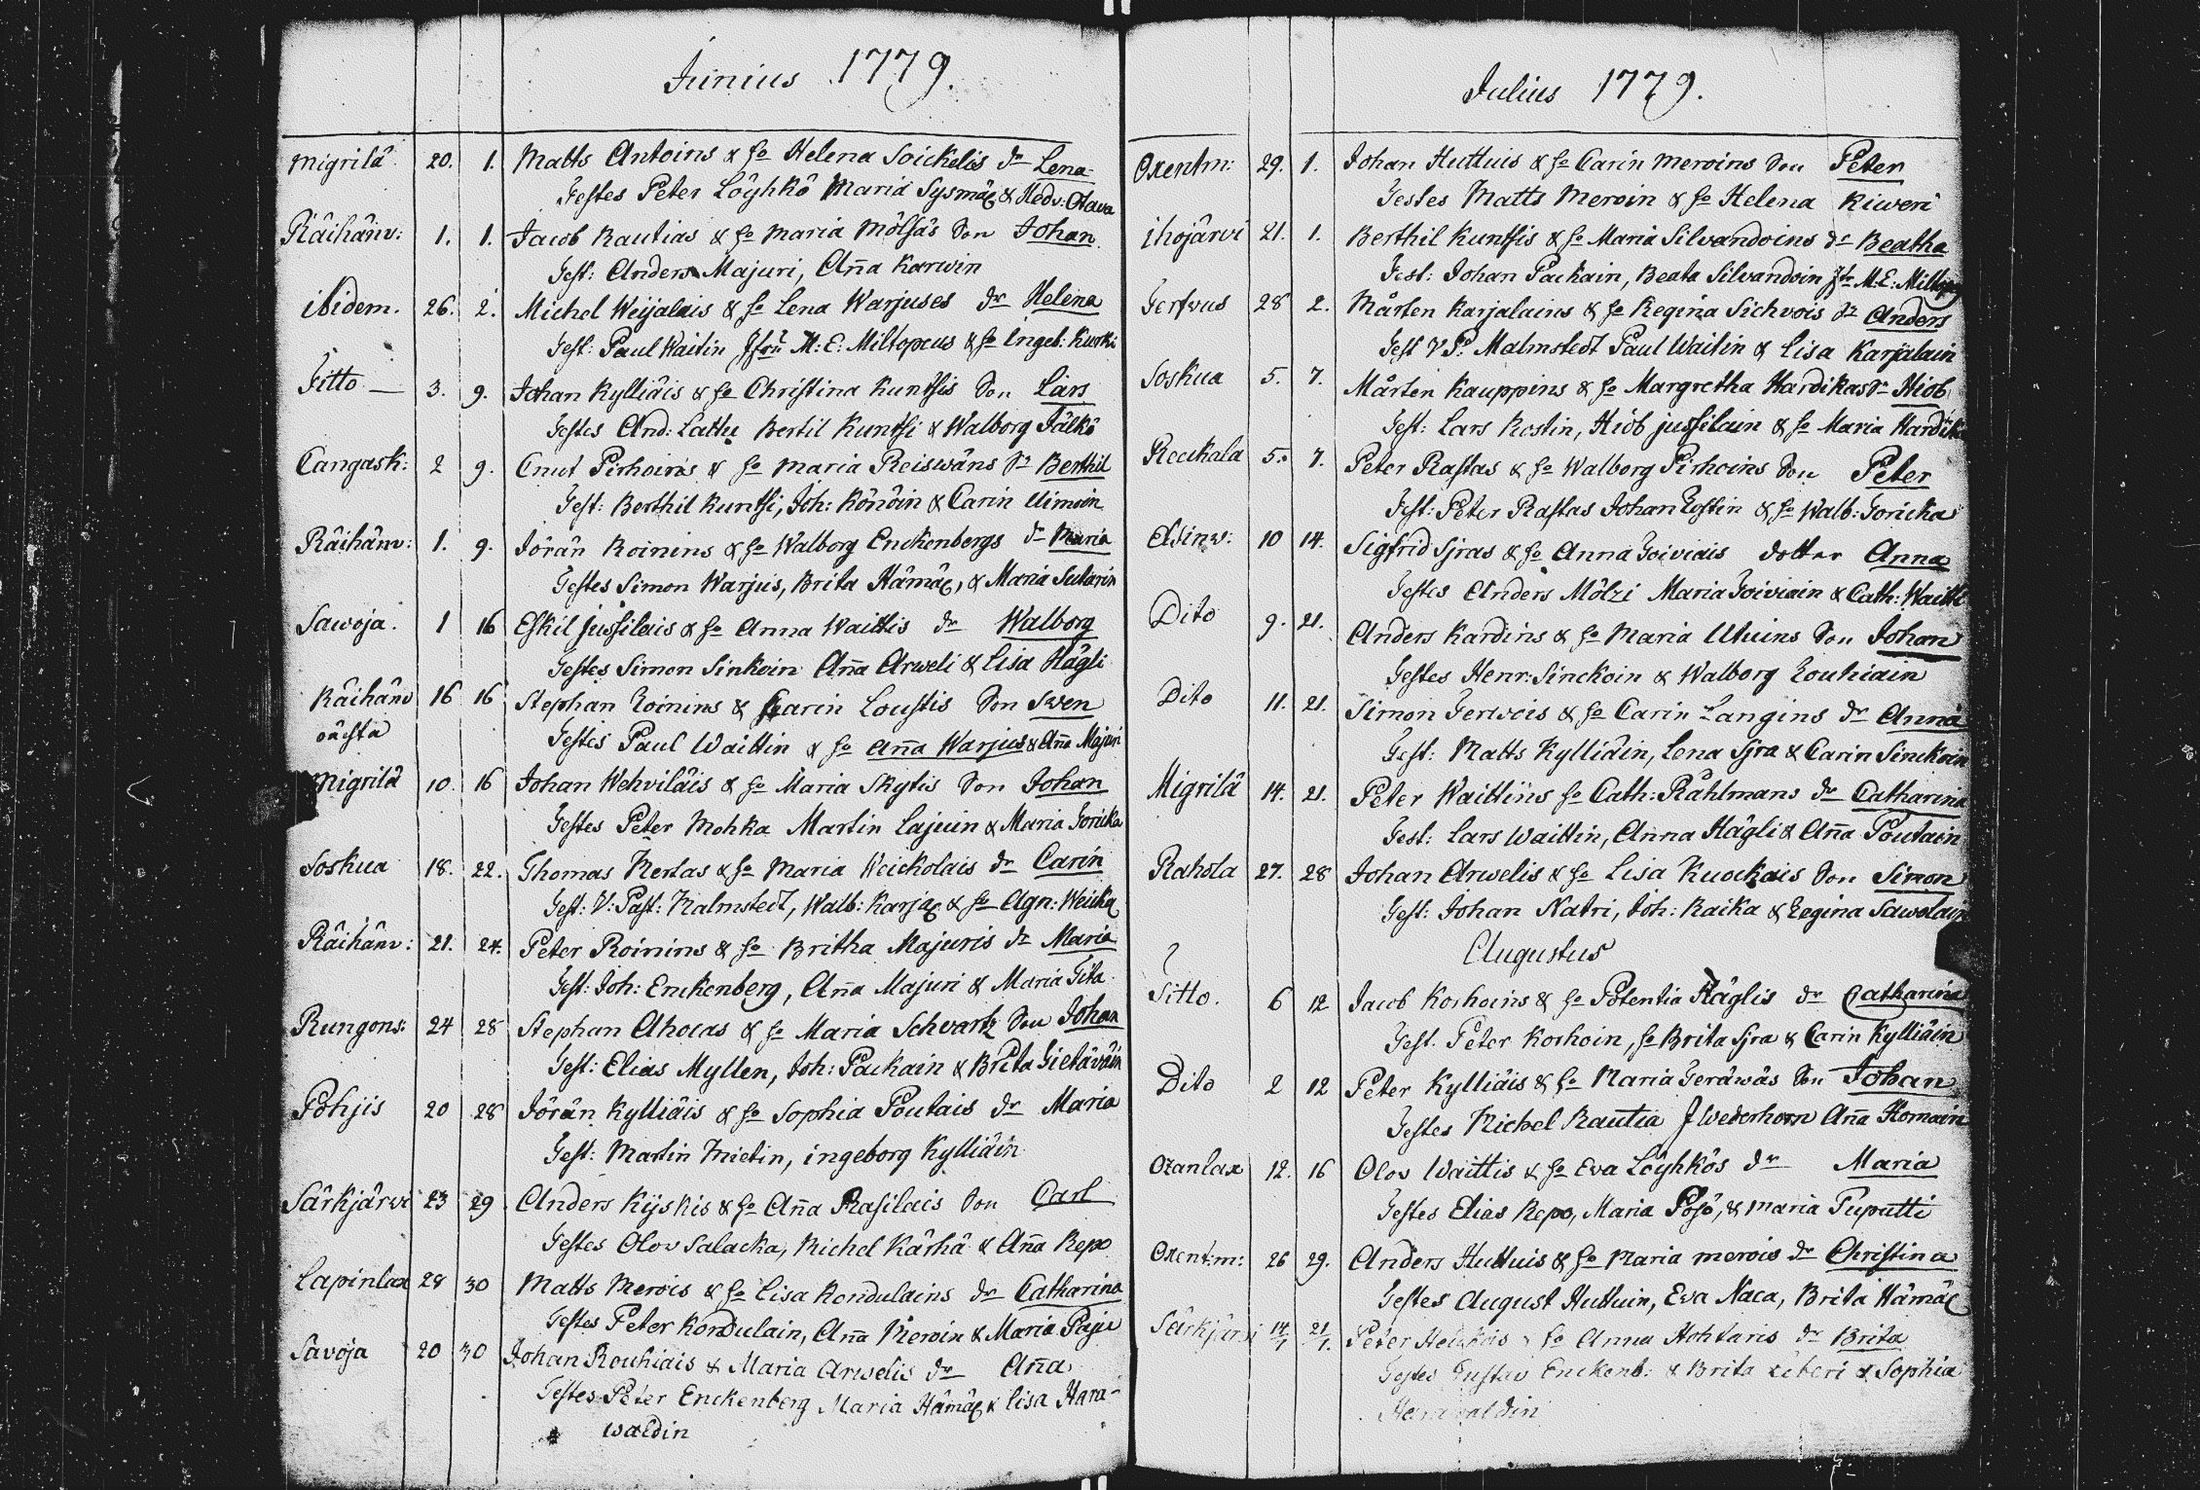 Junius 1779.
Migrilâ. 20. 1. Matts Antoins & ho Helena Soickelis dr Lena
Testes Peter Löyhkö Maria Sysmäɛ & Hedv: Otava
Räihänw: 1. 1. Jacob Rautias & ho Maria Mölsäs Son Johan
Test: Anders Majuri, Aña Karwin
ibidem. 26. 2. Michel Weijalais & ho Lena Warjuses dr Helena
Test: Paul Waitin Jfru M: E: Miltopeus & ho Ingeb: Kurki
Titto — 3. 9. Johan Kylliäis & ho Christina Kuntsis Son Lars
Testes And: Lattu Bertil Kuntsi & Walborg Jälkö
Cangask: 2 9. Cnut Pirhoins & ho Maria Reiswäns Sn Berthil
Test: Berthil Kuntsi, Joh: Könöin & Carin Uimoin
Räihänw: 1. 9. Jörän Roinins & ho Walborg Enckenbergs dr Maria
Testes Simon Warjus, Brita Hämäɛ, & Maria Sutarin
Sawoja. 1 16 Eskil Jussilais & ho Anna Waittis dr Walborg
Testes Simon Sinkoin Aña Arweli & Lisa Hägli
Räihänw 16 16 Stephan Roinins & Carin Loustis Son Swen
oächta Testes Paul Waittin & ho Aña Warjus & Aña Majuri
Migrilâ 10. 16 Johan Wehviläis & ho Maria Skytis Son Johan
Testes Peter Mohka Martin Lajuin & Maria Toricka
Soskua 18. 22. Thomas Mertas & ho Maria Weickolais dr Carin
Test: V: Past: Malmstedt, Walb: Karjaɛ & ho Agn: Weickaɛ
Räihänw: 21. 24. Peter Roinins & ho Britha Majuris dr Maria
Test: Joh: Enckenberg, Aña Majuri & Maria Tita
Rungons: 24 28 Stephan Ahocas & ho Maria Schvartz Son Johan
Test: Elias Myllen, Joh: Packain & Brita Tietäväin
Pohjis 20 28 Jörän Kylliäis & ho Sophia Poutais dr Maria
Test: Martin Mietin, ingeborg Kylliäin
Särkjärwi 23 29 Anders Kijskis & ho Aña Rasilais Son Carl
Testes Olov Salacka, Michel Kärhä & Aña Repo
Lapinlax 28 30 Matts Merois & ho Lisa Kondulains dr Catharina
Testes Peter Kondulain, Aña Meroin & Maria Paju
Savoja 20 30 Johan Rouhiais & Maria Arwelis dr Aña
Testes Peter Enckenberg Maria Hämäɛ & Lisa Hara-
waldin
Julius 1779.
Oxentm: 29. 1. Johan Huttuis & ho Carin Meroins Son Peter
Testes Matts Meroin & ho Helena Kiweri
ihojärvi 21. 1. Berthil Kuntsis & ho Maria Silvandoins dr Beatha
Test: Johan Packain, Beata Silvandoin Jfr M: E: Miltop
Terfvus 28 2. Mårten Karjalains & ho Regina Sichvois Sn Anders
Test V P. Malmstedt Paul Waitin & Lisa Karjalain
Soskua 5. 7. Mårten Kauppins & ho Margretha Hardikas Sn Hiob
Test: Lars Kostin, Hiob jussilain & ho Maria Hardik
Reckala 5. 7. Peter Rastas & ho Walborg Pirhoins Son Peter
Test: Peter Rastas Johan Kostin & ho Walb: Toricka
Asinw: 10 14. Sigfrid Sjras & ho Anna Toiviais dotter Anna
Testes Anders Mölzi Maria Toiviain & Cath: Waitti
Dito 9. 21. Anders Kardins & ho Maria Uhuins Son Johan
Testes Henr: Sinckoin & Walborg Rouhiain
Dito 11. 21. Simon Terwois & ho Carin Langins dr Anna
Test: Matts Kylliäin, Lena Sjra & Carin Sinckoin
Migrilâ 14. 21. Peter Waittins ho Cath: Råhlmans dr Catharina
Test: Lars Waittin, Anna Hägli & Aña Poutain
Rahola 27. 28 Johan Arwelis & ho Lisa Kuockais Son Simon
Test: Johan Natri, Joh: Raika & Regina Sawolain
Augustus
Titto. 6 12 Jacob Korhoins & ho Potentia Häglis dr Catharina
Test. Peter Korhoin, ho Brita Sjra & Carin Kylliäin
Dito 2 12 Peter Kylliäis & ho Maria Teräwäs Son Johan
Testes Michel Rautia J Wederhorn Aña Homain
Ozanlax 12. 16 Olov Waittis & ho Eva Löyhkös dr Maria
Testes Elias Repo, Maria Posö, & Maria Puputti
Oxentm: 26 29. Anders Huttuis & ho Maria Merois dr Christina
Testes August Huttuin, Eva Naca, Brita Hämäɛ
Särkjärvi 14/7 21/7. Peter & ho Anna Hohtaris dr Brita
Testes Gustav Enckenb: & Brita & Sophia